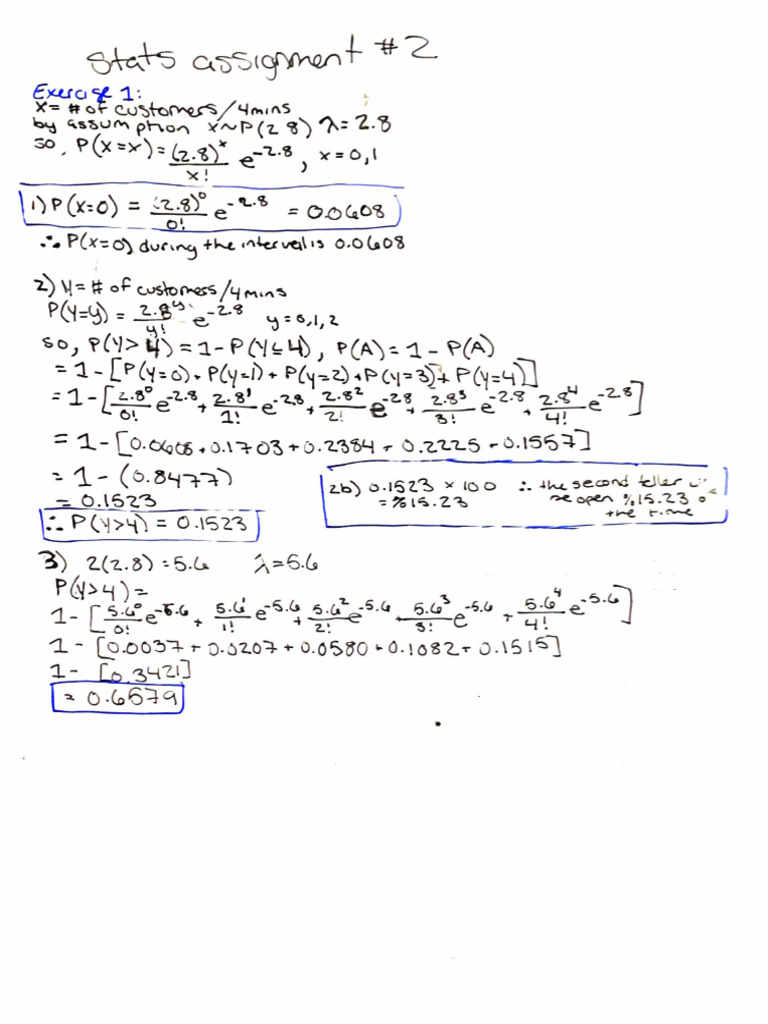 stats assignment #2
Exercise 1:
X = # of customers/4mins
by assumption X~P(2.8) λ=2.8
so, P(X=x) = (2.8)^x/x! e^-2.8, x=0,1
1) P(X=0) = (2.8)^0/0! e^-2.8 = 0.0608
∴ P(X=0) during the interval is 0.0608
2) Y = # of customers/4mins
P(Y=y) = 2.8^y/y! e^-2.8 y=0,1,2
so, P(Y>4) = 1-P(Y≤4), P(A) = 1 - P(A)
= 1 - [P(Y=0) + P(Y=1) + P(Y=2) + P(Y=3) + P(Y=4)]
= 1 - [2.8^0/0! e^-2.8 + 2.8^1/1! e^-2.8 + 2.8^2/2! e^-2.8 + 2.8^3/3! e^-2.8 + 2.8^4/4! e^-2.8]
= 1 - [0.0608 + 0.1703 + 0.2384 + 0.2225 + 0.1557]
= 1 - (0.8477)
= 0.1523
∴ P(Y>4) = 0.1523
2b) 0.1523 × 100 ∴ the second teller
= %15.23 be open %15.23 of
the time
3) 2(2.8) = 5.6 λ=5.6
P(Y>4) =
1 - [5.6^0/0! e^-5.6 + 5.6^1/1! e^-5.6 + 5.6^2/2! e^-5.6 + 5.6^3/3! e^-5.6 + 5.6^4/4! e^-5.6]
1 - [0.0037 + 0.0207 + 0.0580 + 0.1082 + 0.1515]
1 - [0.3421]
= 0.6579